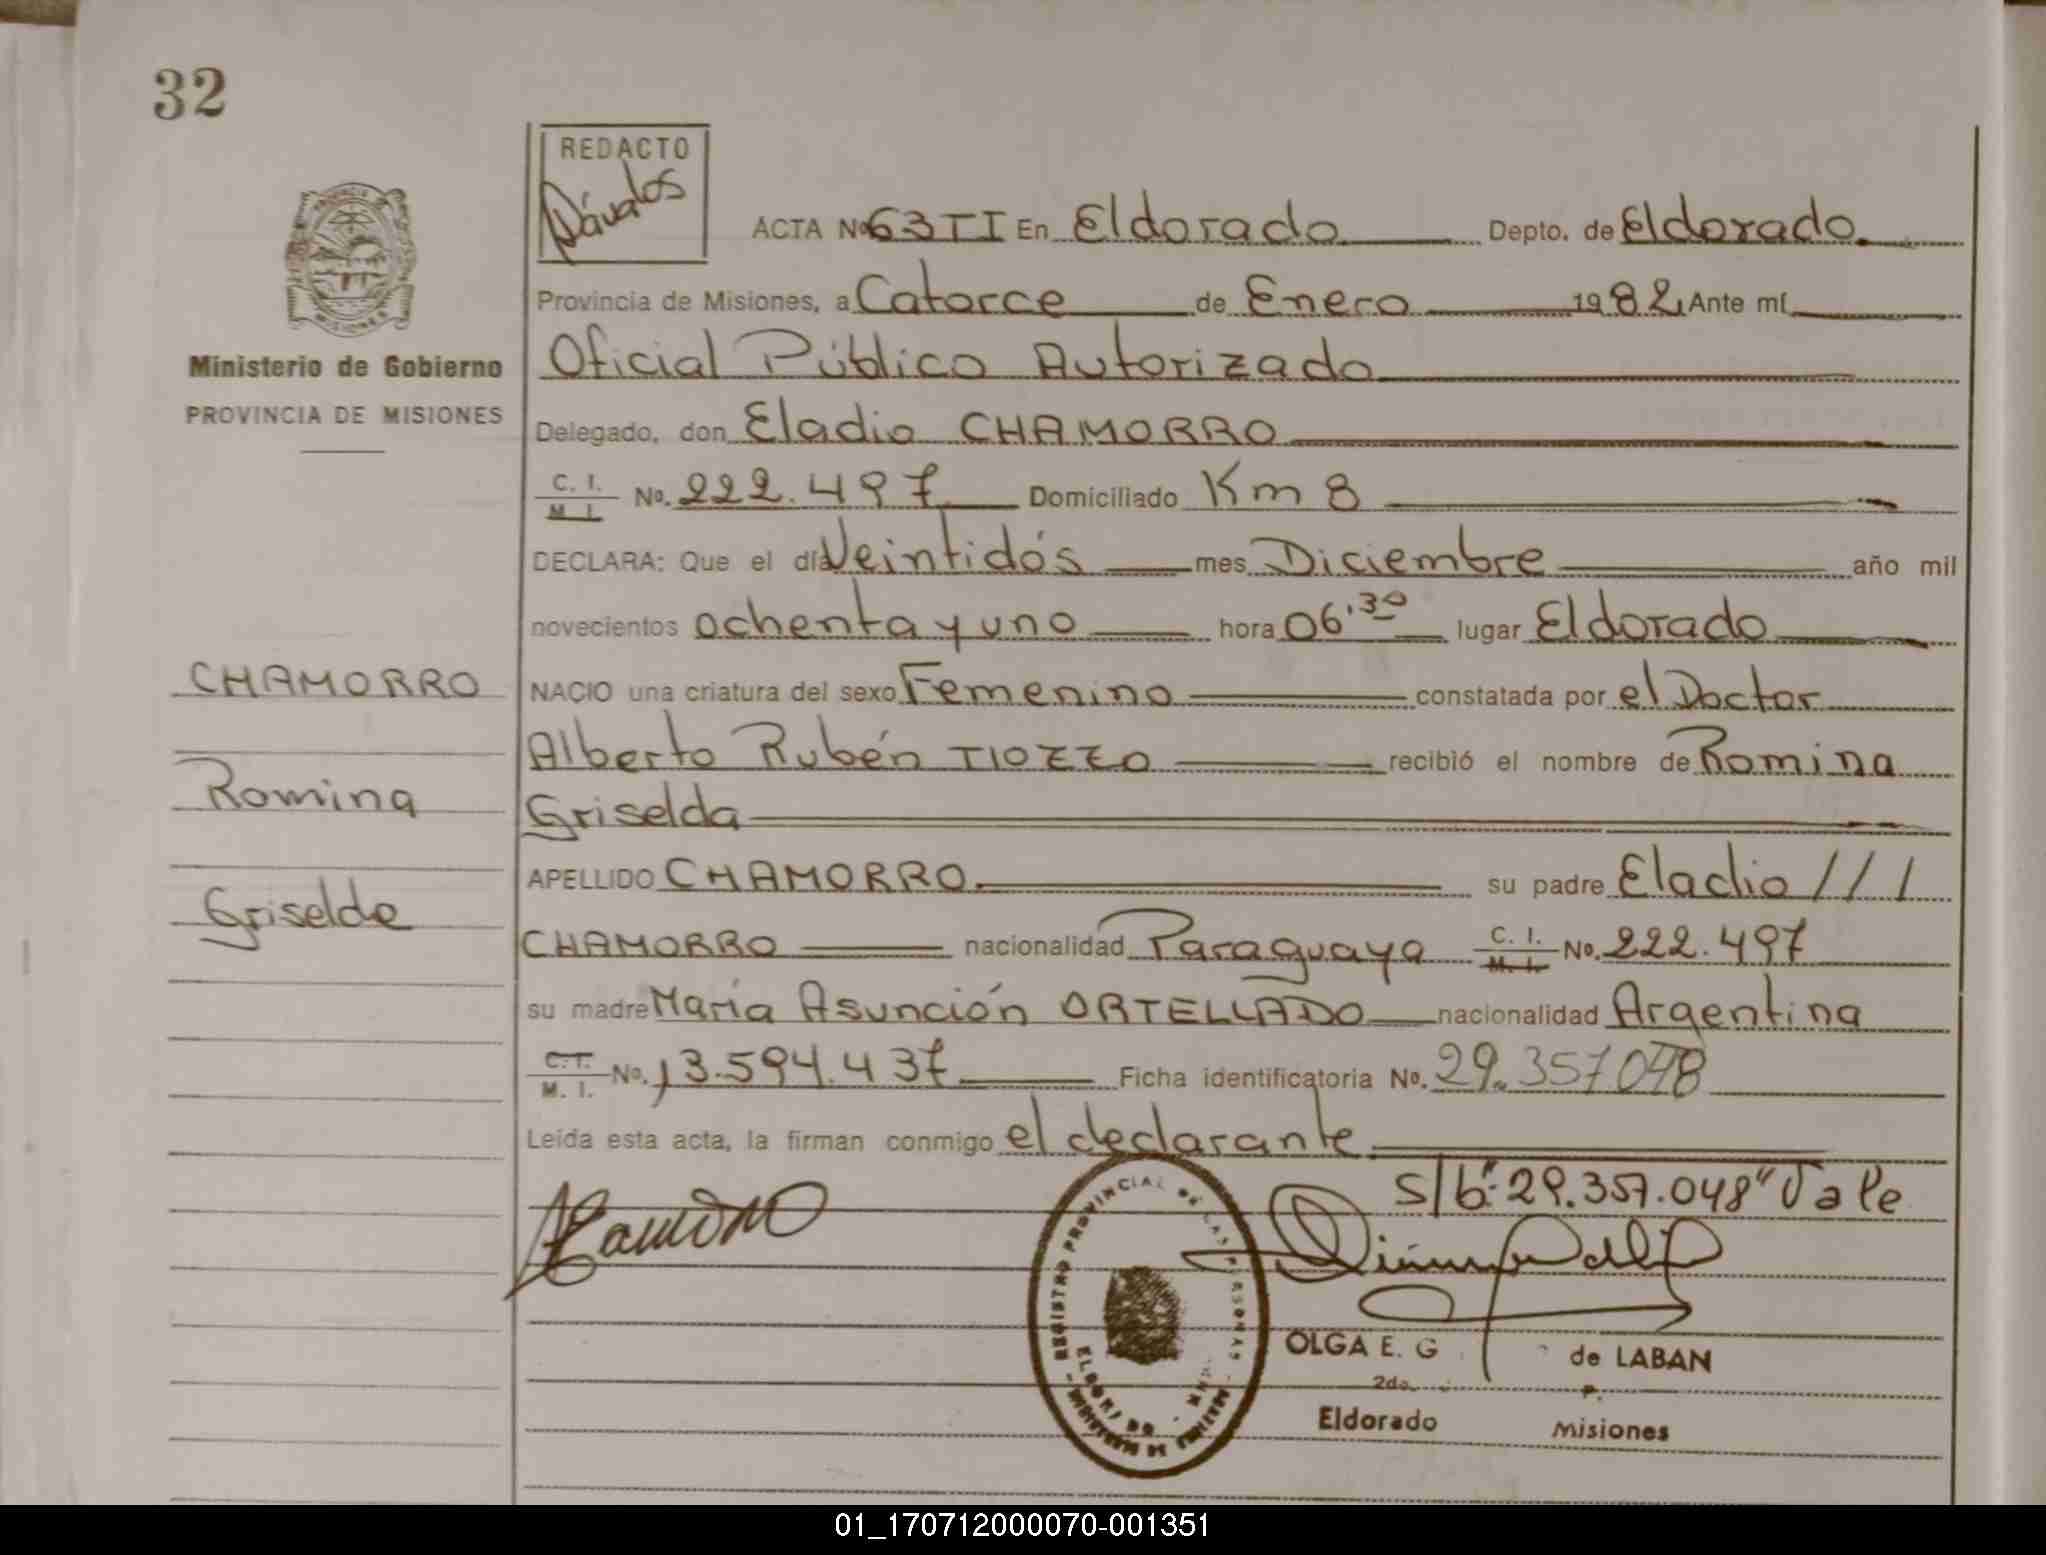 32
REDACTO
Dávalos
ACTA No 63 TI En Eldorado Depto. de Eldorado.
Provincia de Misiones, a Catorce de Enero 1982 Ante mí
Ministerio de Gobierno
PROVINCIA DE MISIONES
Oficial Público Autorizado
Delegado, don Eladio CHAMORRO
C. I. M. I. No. 222.497 Domiciliado Km 8
DECLARA: Que el día Veintidós mes Diciembre año mil
novecientos ochenta y uno hora 06,30 lugar Eldorado
CHAMORRO
Romina
Griselda
NACIO una criatura del sexo Femenino constatada por el Doctor
Alberto Rubén TIOZZO recibió el nombre de Romina
Griselda
APELLIDO CHAMORRO. su padre Eladio ///
CHAMORRO nacionalidad Paraguaya C. I. M. I. No. 222.497
su madre María Asunción ORTELLADO nacionalidad Argentina
C. I. M. I. No. 13.594.437 Ficha identificatoria No. 29.357048
Leída esta acta, la firman conmigo el declarante
s/b:"29.357.048" Vale
REGISTRO PROVINCIAL DE LAS PERSONAS
OLGA E. G de LABAN
2da.
Eldorado Misiones
01_170712000070-001351